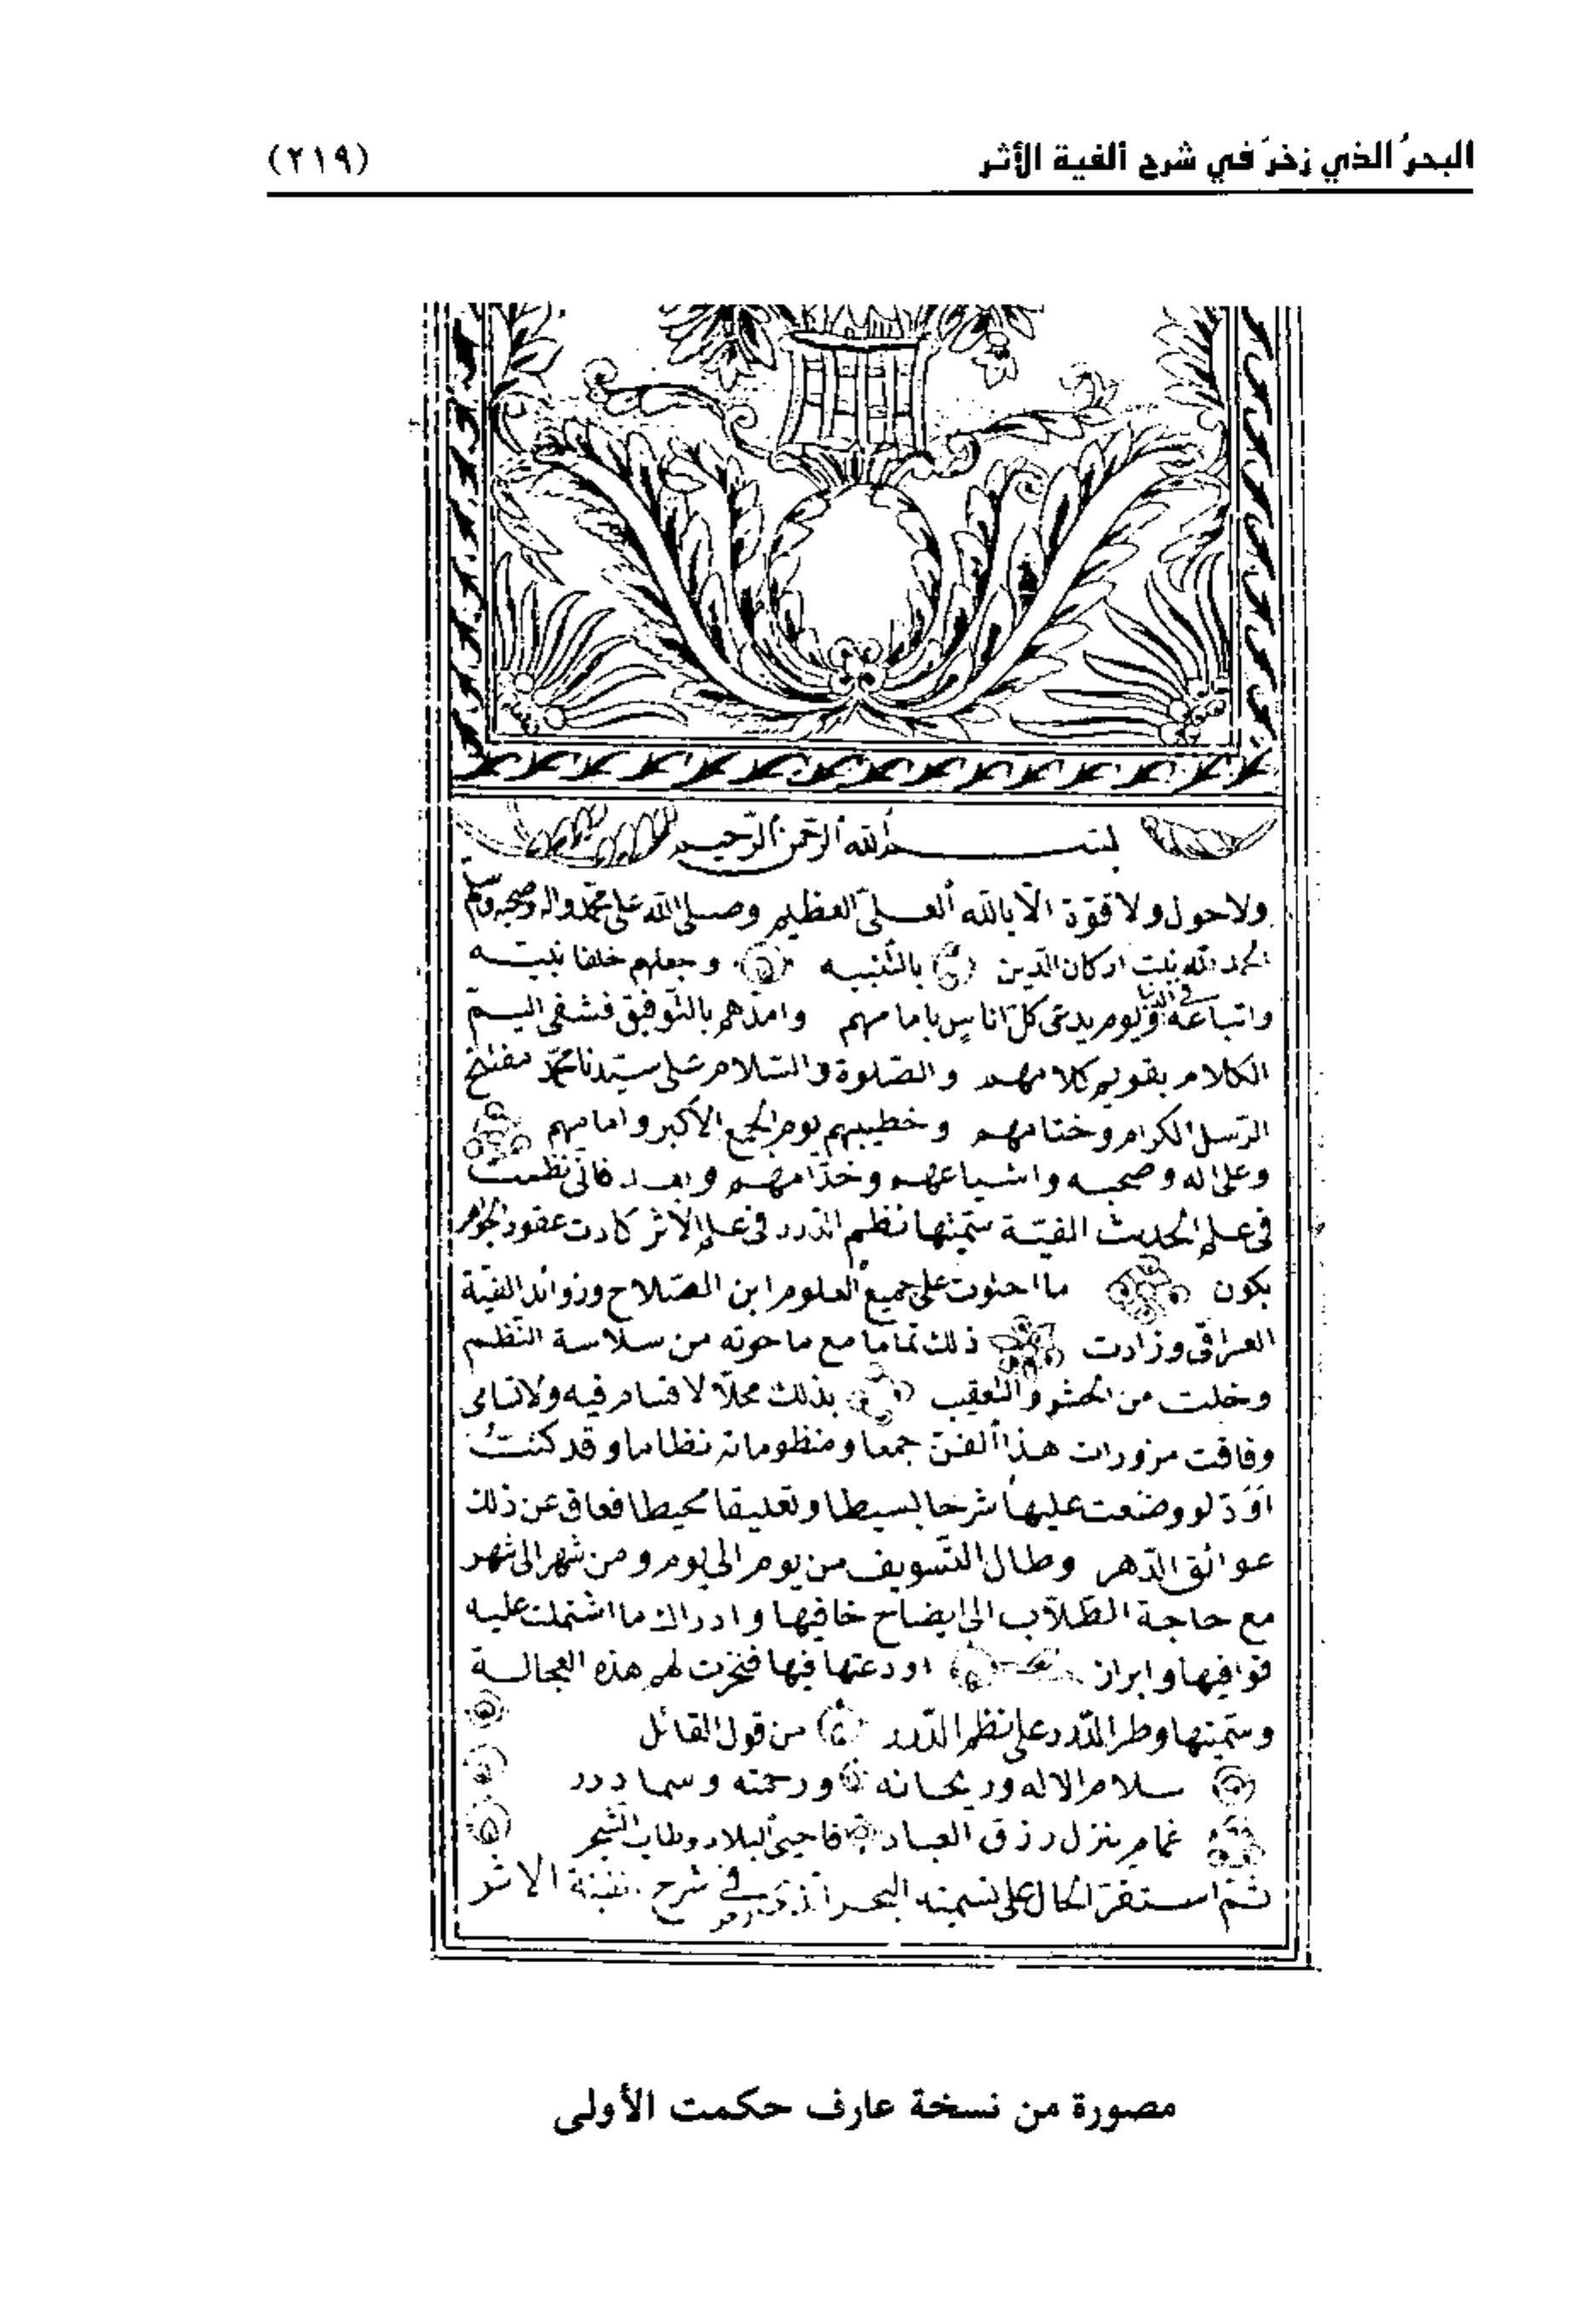 البحرُ الذي زخرَ في شرح ألفية الأثر
(٢١٩)
بسم الله الرحمن الرحيم
ولا حول ولا قوّة الّا بالله العلىّ العظيم وصلى الله على محمّد واله وصحبه وسلم
الحمد لله مثبت اركان الدين بالتثبيه وجعلهم خلفا نبيّه
واتباعه فى الدنيا ويوم يدعى كلّ اناس بامامهم وامدّهم بالتّوفيق فشفى اليم
الكلام بقويم كلامهم والصّلوة والسّلام على سيّدنا محمّد مفتتح
الرّسل الكرام وختامهم وخطيبهم يوم الجمع الأكبر وامامهم
وعلى اله وصحبه واشياعهم وخدّامهم وبعد فانّى نظمت
فى علم الحديث الفيّة سمّيتها نظم الدّرر فى علم الأثر كادت عقود الجواهر
بكون ما احتوت على جميع العلوم ابن الصّلاح وزوائد الفيّة
العراقى وزادت ذلك تماما مع ما حوته من سلاسة النّظم
وخلت من الحشو والتعقيب بذلك محلّا لا فيه ولا تسامى
وفاقت مزورات هذا الفنّ جمعا ومنظوماته نظاما وقد كنتُ
اوَدّ لو وضعت عليها شرحا بسيطا وتعليقا محيطا فعاق عن ذلك
عوائق الدّهر وطال التسويف من يوم الى يوم ومن شهر الى شهر
مع حاجة الطّلّاب الى ايضاح خافيها وادراك ما اشتملت عليه
قوافيها وابراز اودعتها فيها فنجزت لهم هذه العجالة
وسمّيتها وطر الدّرر على نظم الدّرر من قول القائل
سلام الاله وريحانه ورحمته وسما درر
غمام ينزل رزق العباد فاحيى البلاد وطاب الشجر
ثمّ استقرّ الحال على تسميته البحر الذى زخر فى شرح الفية الاثر
مصورة من نسخة عارف حكمت الأولى